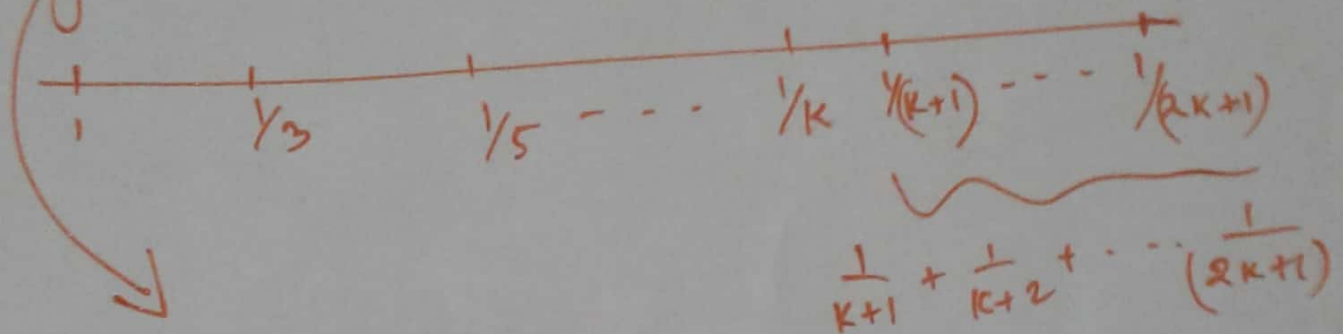 1 1/3 1/5 - - - - 1/K 1/(K+1) - - - - 1/(2K+1)
1/(K+1) + 1/(K+2) + . . . . 1/(2K+1)